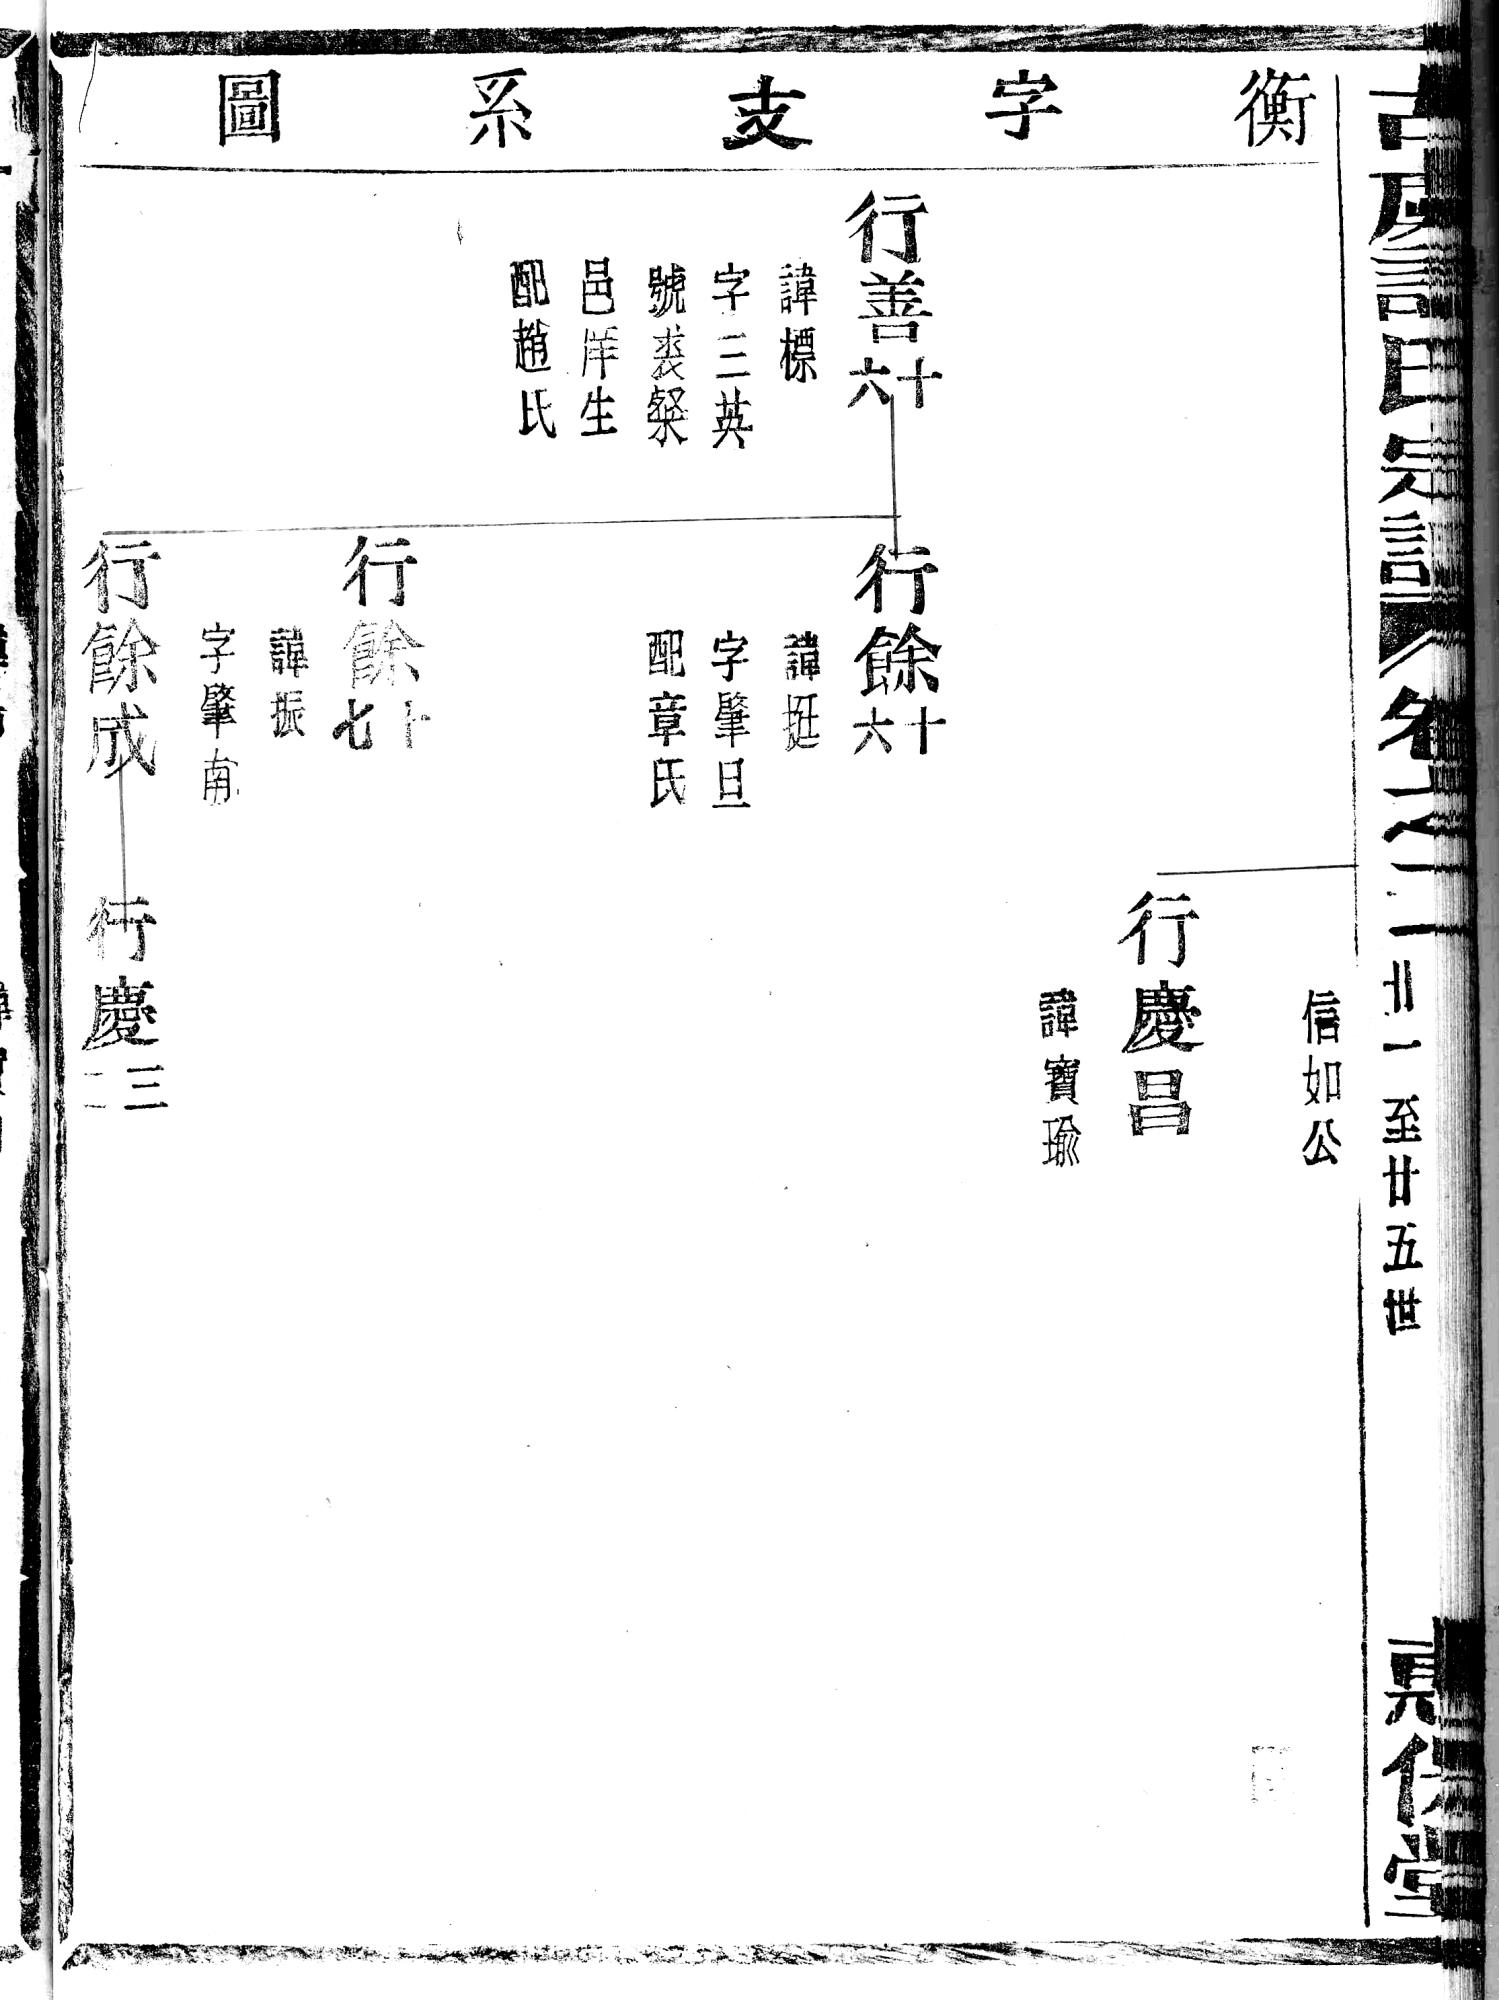 衡字支系圖
古虞
宗譜
卷之二
廿一至廿五世
惇保堂
信如公
行慶昌
諱寶瑜
行善十六
諱標
字三英
號裘粲
邑庠生
配趙氏
行餘十六
諱挺
字肇旦
配章氏
行餘十七
諱振
字肇南
行餘成
行慶三二